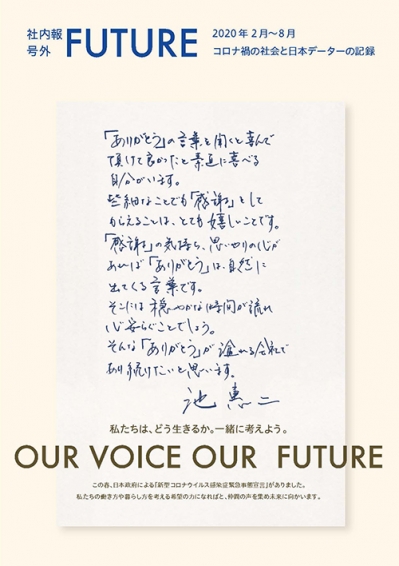 社内報
号外
FUTURE
2020年2月〜8月
コロナ禍の社会と日本データーの記録
「ありがとう」の言葉を聞くと喜んで
頂けて良かったと素直に喜べる
自分がいます。
些細なことでも「感謝」として
もらえることは、とても嬉しいことです。
「感謝」の気持ち、思いやりの心が
あれば「ありがとう」は、自然に
出てくる言葉です。
そこには穏やかな時間が流れ
心安らぐことでしょう。
そんな「ありがとう」が溢れる会社で
あり続けたいと思います。
池 惠二
私たちは、どう生きるか。一緒に考えよう。
OUR VOICE OUR FUTURE
この春、日本政府による「新型コロナウイルス感染症緊急事態宣言」がありました。
私たちの働き方や暮らし方を考える希望の力になればと、仲間の声を集め未来に向かいます。